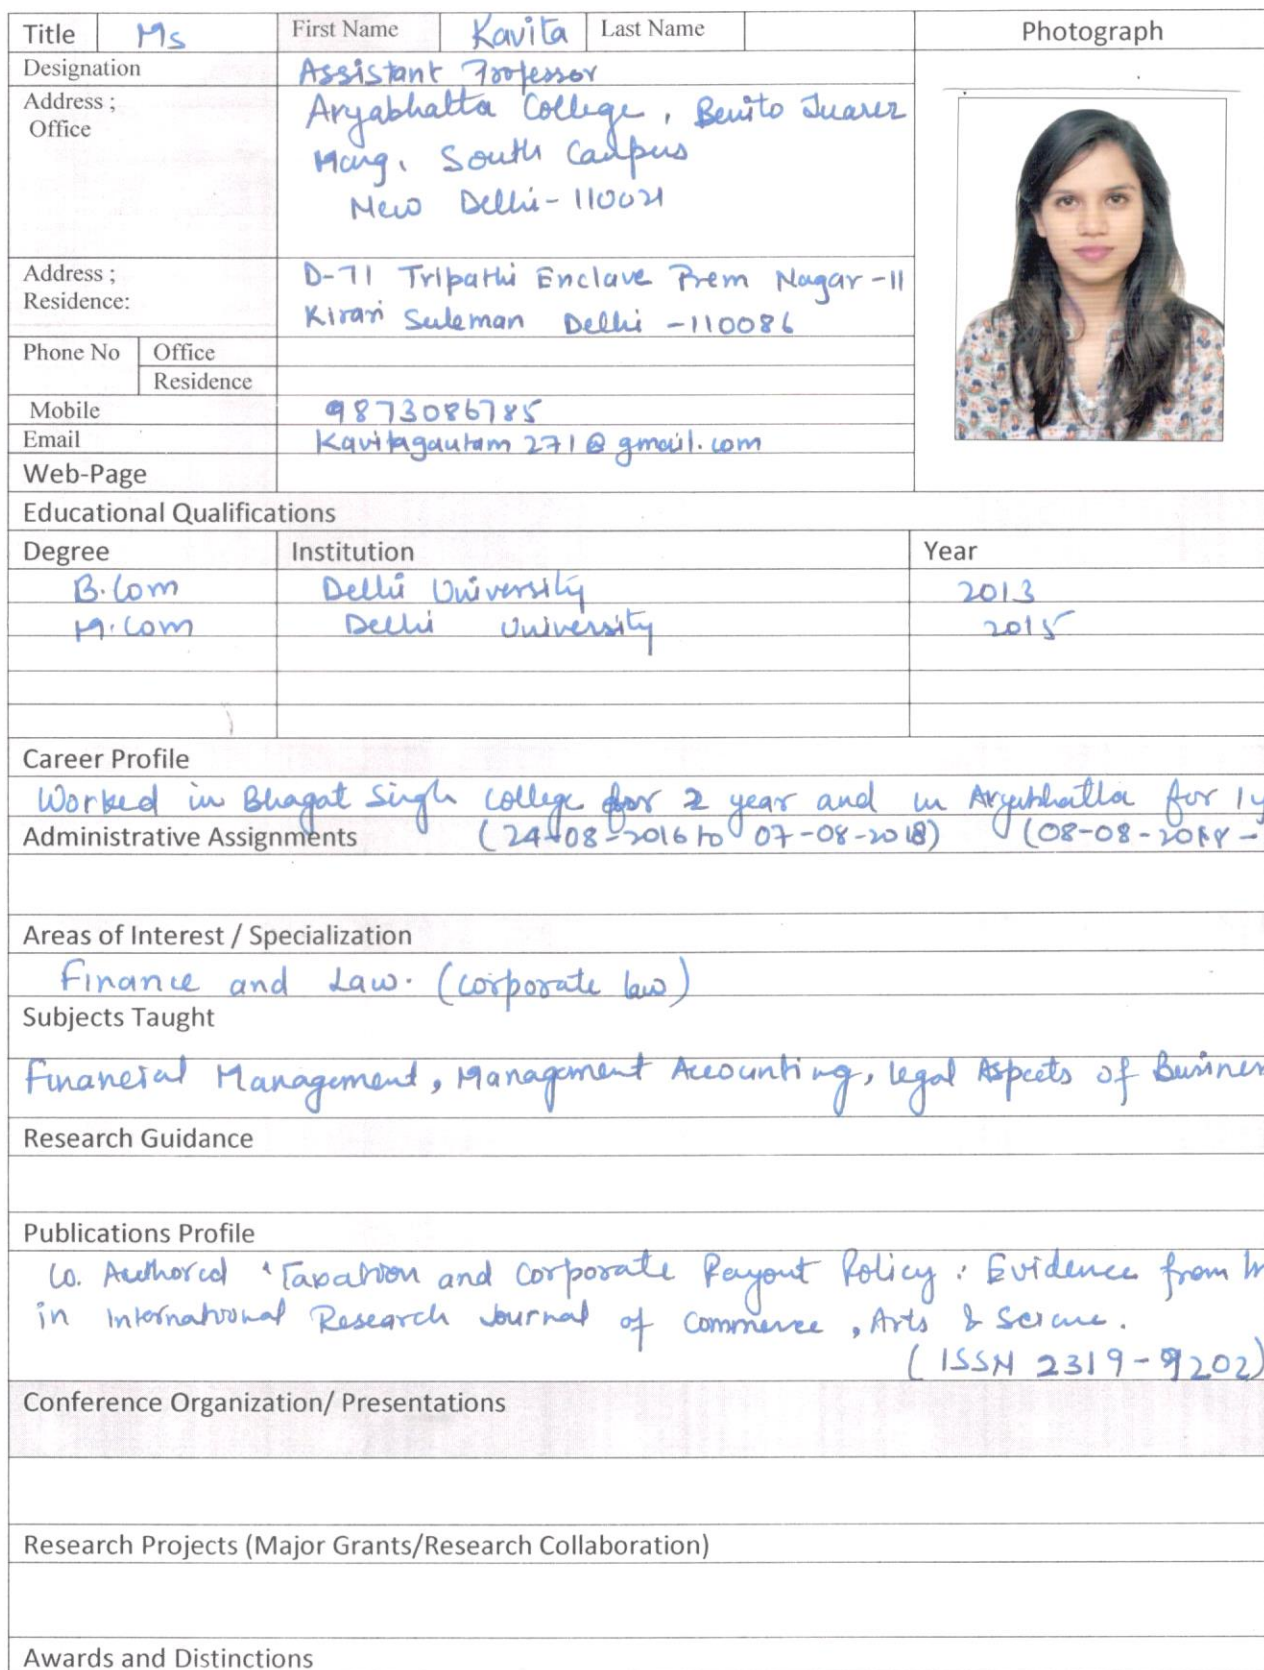 Title Ms First Name Kavita Last Name Photograph
Designation Assistant Professor
Address ; Aryabhatta College, Benito Juarez
Office Marg, South Campus
New Delhi-110021
Address ; D-71 Tripathi Enclave Prem Nagar-II
Residence: Kirari Suleman Delhi-110086
Phone No Office
Residence
Mobile 9873086785
Email Kavitagautam271@gmail.com
Web-Page
Educational Qualifications
Degree Institution Year
B.Com Delhi University 2013
M.Com Delhi University 2015
Career Profile
Worked in Bhagat Singh College for 2 year and in Aryabhatta for 1 y
Administrative Assignments (24-08-2016 to 07-08-2018) (08-08-2018 -
Areas of Interest / Specialization
Finance and Law. (corporate law)
Subjects Taught
Financial Management, Management Accounting, legal Aspects of Busines
Research Guidance
Publications Profile
Co. Authored "Taxation and Corporate Payout Policy: Evidence from
in International Research Journal of Commerce, Arts & Science.
(ISSN 2319-9202)
Conference Organization/ Presentations
Research Projects (Major Grants/Research Collaboration)
Awards and Distinctions